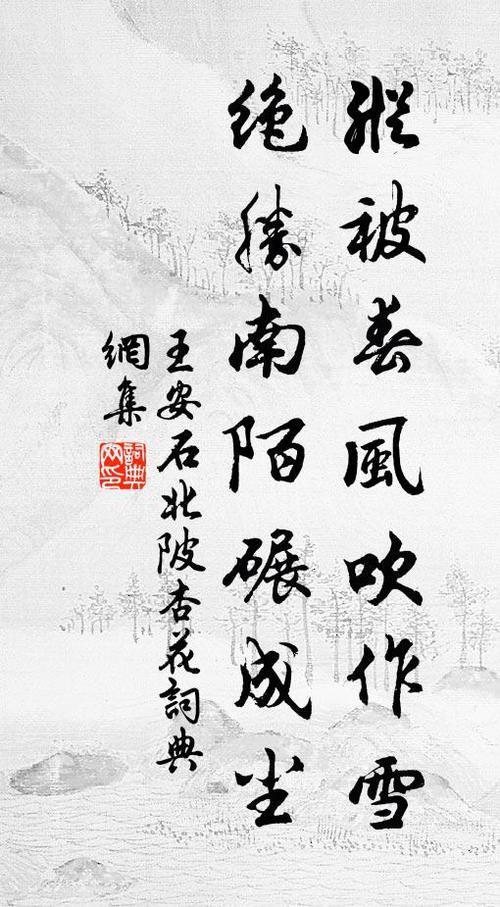 縱被春風吹作雪
絶勝南陌碾成尘
王安石北陂杏花詞典
網集
詞典